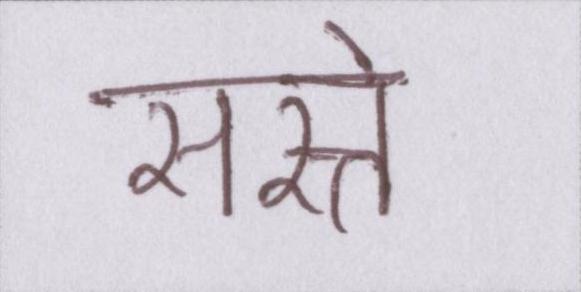 सस्ते